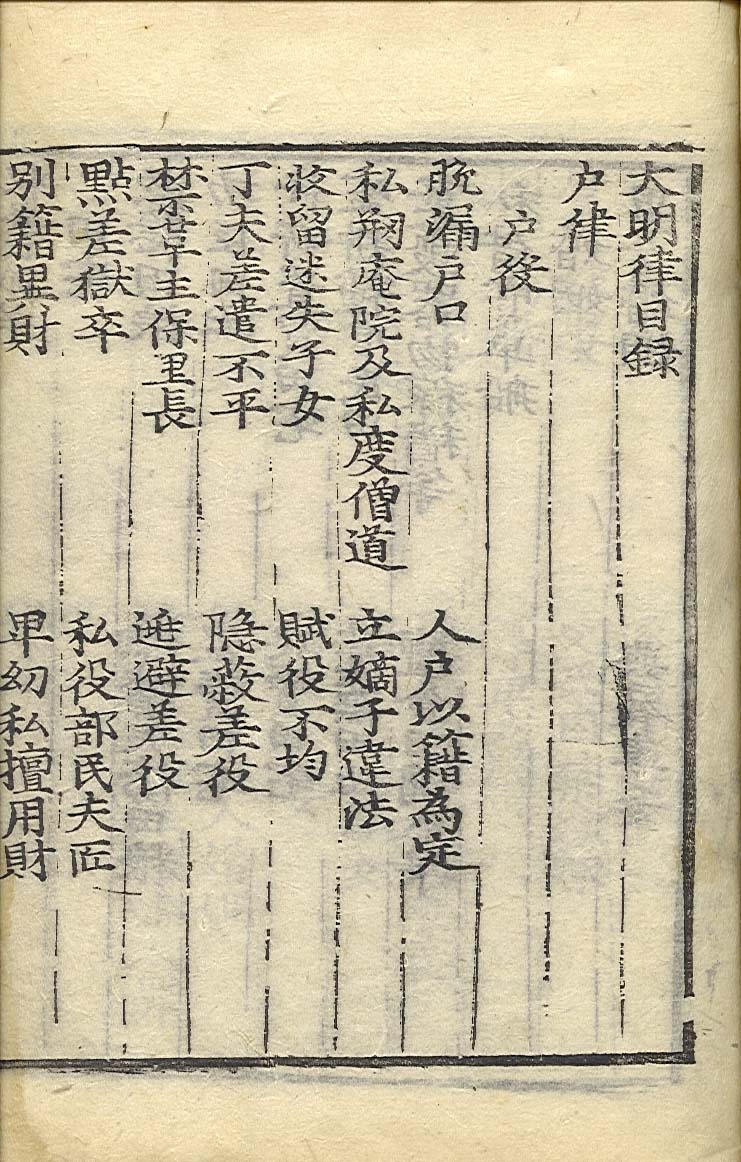 大明律目録
户律
户役
脫漏户口　人户以籍為定
私剏庵院及私度僧道　立嫡子違法
收留迷失子女　賦役不均
丁夫差遣不平　隠蔽差役
禁革主保里長　逃避差役
點差獄卒　私役部民夫匠
別籍異財　卑幼私擅用財